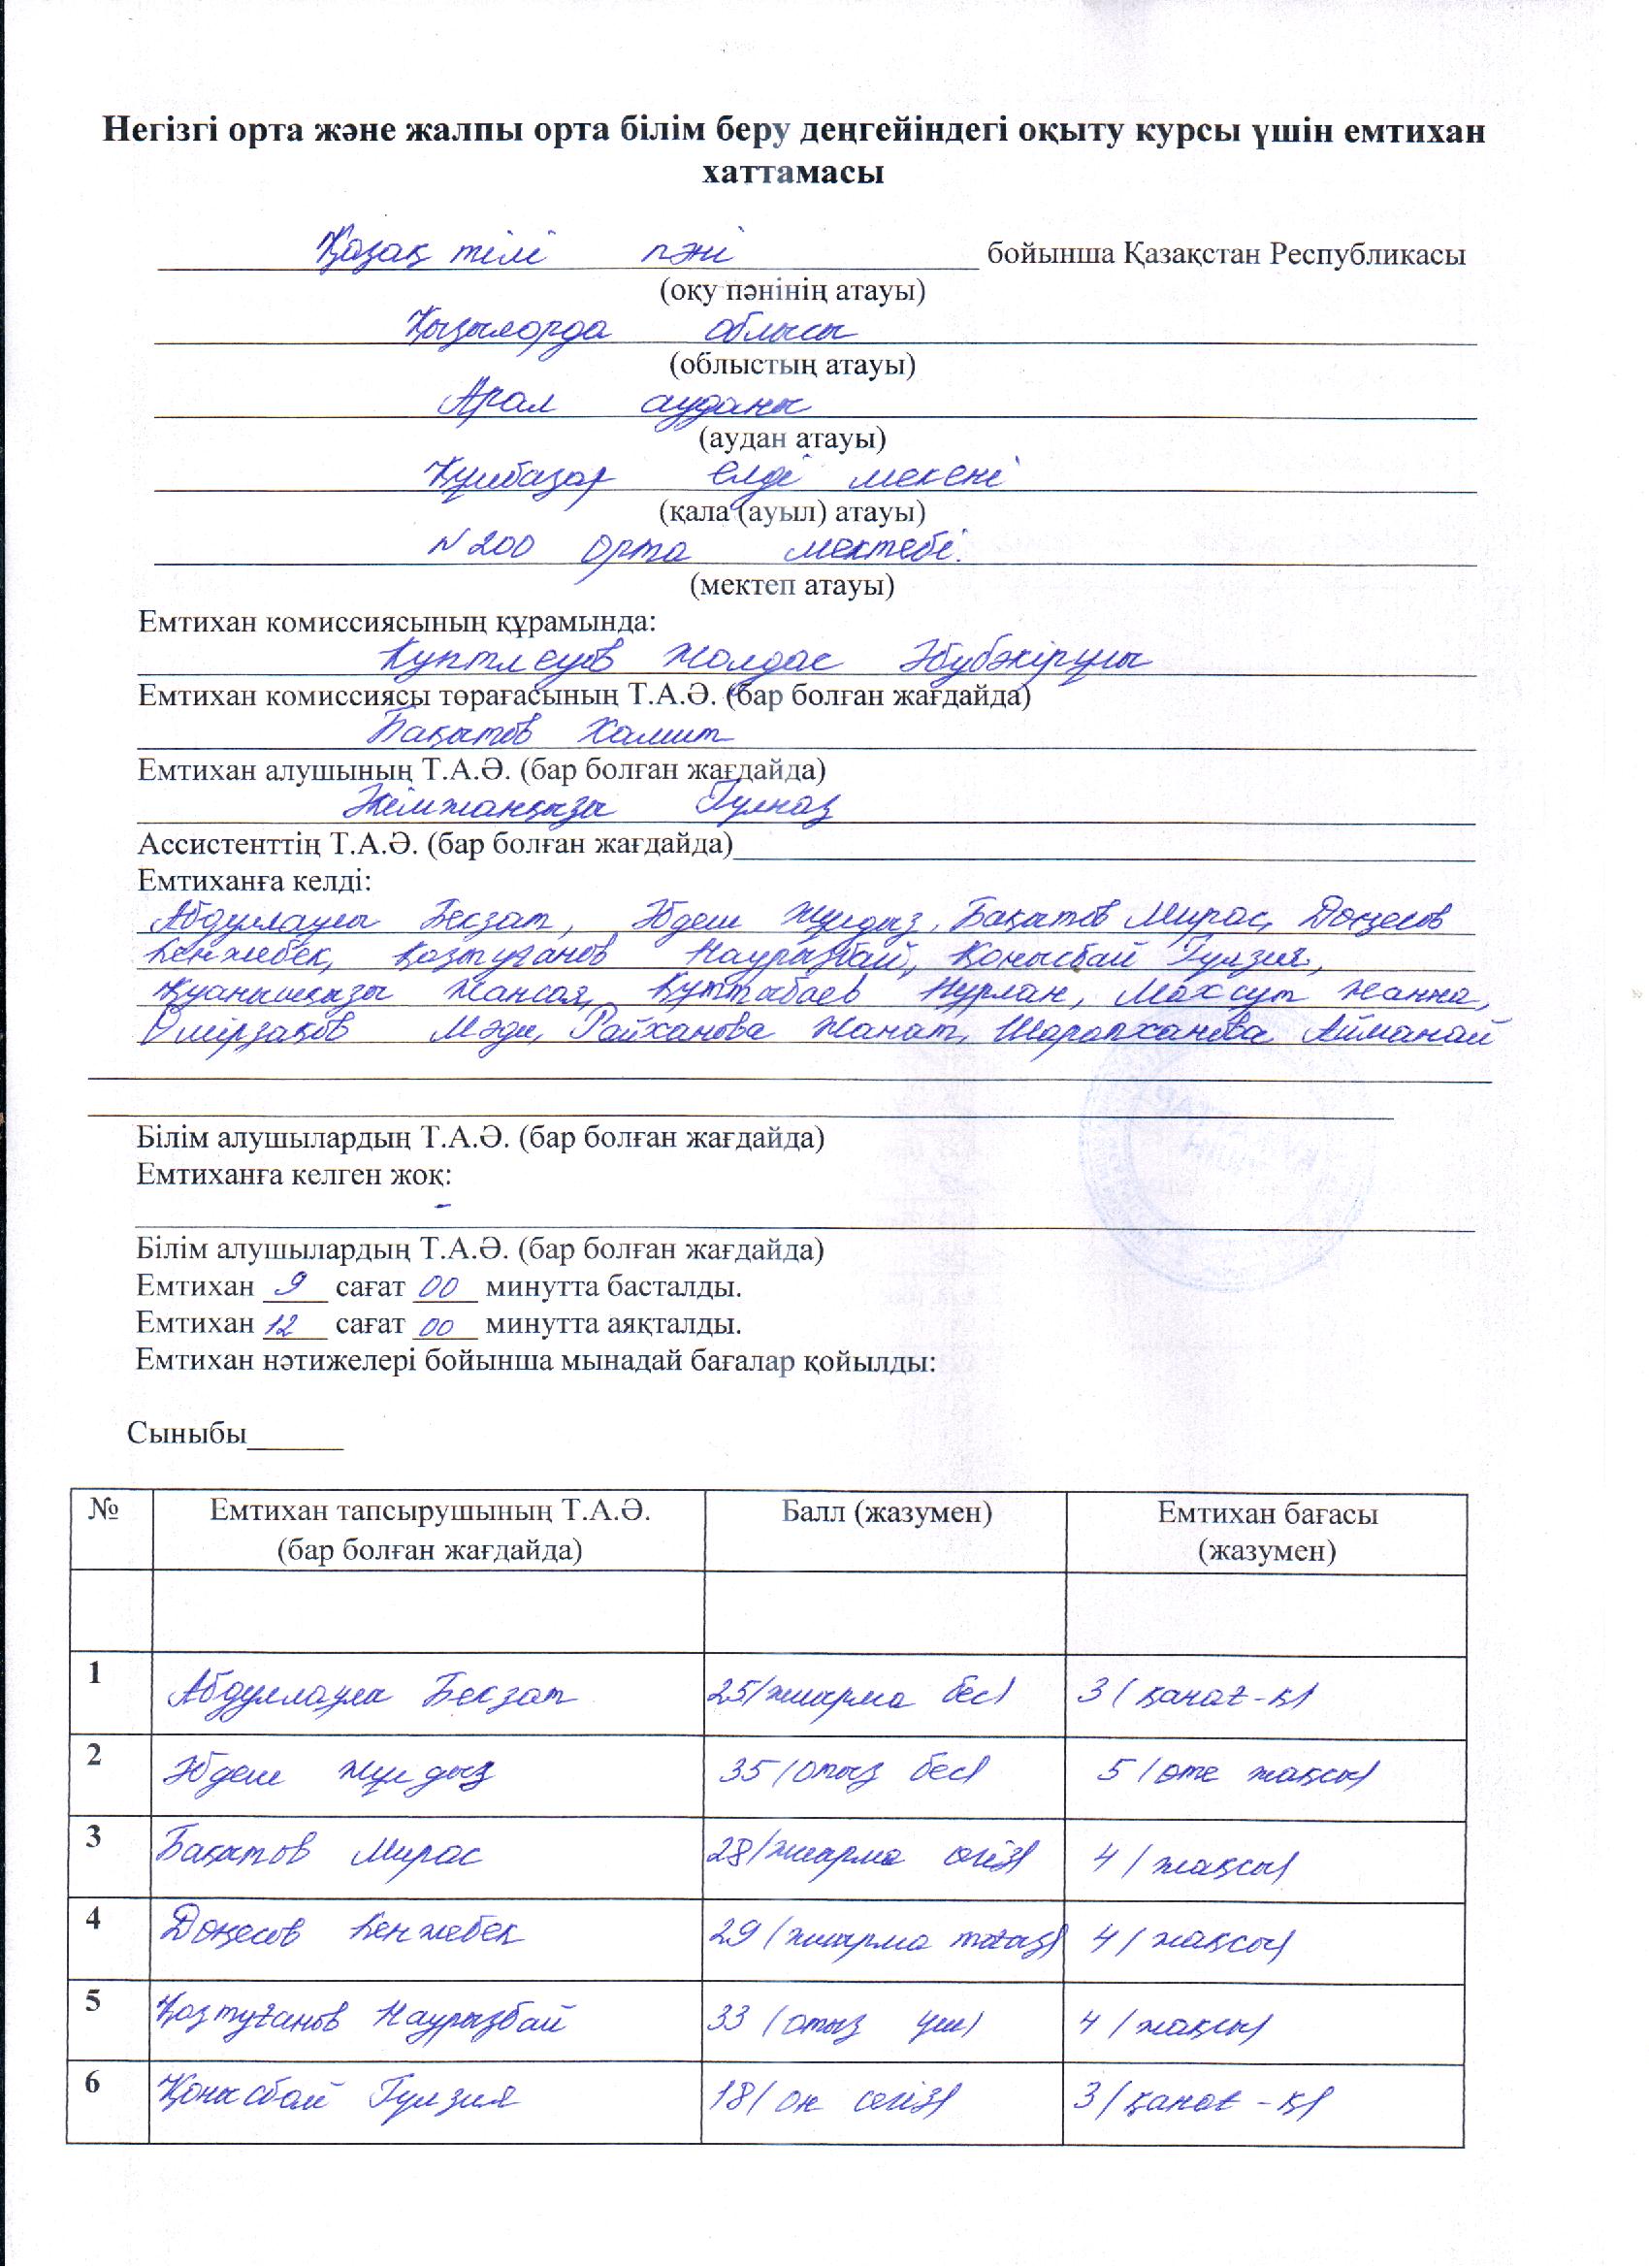 Негізгі орта және жалпы орта білім беру деңгейіндегі оқыту курсы үшін емтихан
хаттамасы
Қазақ тілі пәні бойынша Қазақстан Республикасы
(оқу пәнінің атауы)
Қызылорда облысы
(облыстың атауы)
Арал ауданы
(аудан атауы)
Құмбазар елді мекені
(қала (ауыл) атауы)
N200 орта мектебі.
(мектеп атауы)
Емтихан комиссиясының құрамында:
Куптлеуов Жолдас Әбубәкірұлы
Емтихан комиссиясы төрағасының Т.А.Ә. (бар болған жағдайда)
Бақытов Хамит
Емтихан алушының Т.А.Ә. (бар болған жағдайда)
Әлімжанқызы Гулназ
Ассистенттің Т.А.Ә. (бар болған жағдайда)
Емтиханға келді:
Абдуллаұлы Бекзат, Әбдеш Жұлдыз, Бақытов Мирас, Дөңесов
Кенжебек, Қазтуғанов Наурызбай, Қонысбай Гулзия,
Қуанышқызы Жансая, Құттыбаев Нұрлан, Махсут Жанна,
Өмірзақов Мәди, Райханова Жанат, Шарапханова Айманай
Білім алушылардың Т.А.Ә. (бар болған жағдайда)
Емтиханға келген жоқ:
-
Білім алушылардың Т.А.Ә. (бар болған жағдайда)
Емтихан 9 сағат 00 минутта басталды.
Емтихан 12 сағат 00 минутта аяқталды.
Емтихан нәтижелері бойынша мынадай бағалар қойылды:
Сыныбы
№ Емтихан тапсырушының Т.А.Ә. Балл (жазумен) Емтихан бағасы
(бар болған жағдайда) (жазумен)
1 Абдуллаұлы Бекзат 25 (жиырма бес) 3 (қанағ-қ)
2 Әбдеш Жұлдыз 35 (отыз бес) 5 (өте жақсы)
3 Бақытов Мирас 28 (жиырма сегіз) 4 (жақсы)
4 Дөңесов Кенжебек 29 (жиырма тоғыз) 4 (жақсы)
5 Қозтуғанов Наурызбай 33 (отыз үш) 4 (жақсы)
6 Қонысбай Гулзия 18 (он сегіз) 3 (қанағ-қ)